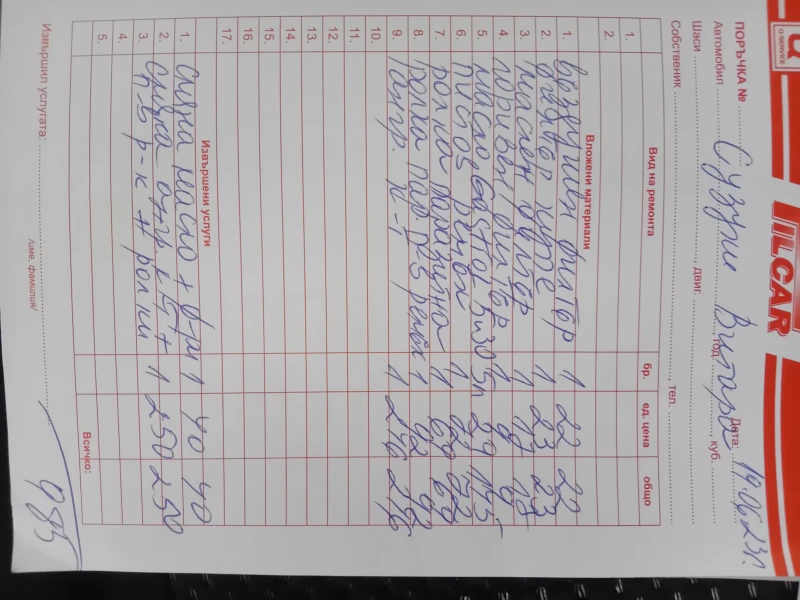 G-SERVICE
TILCAR
ПОРЪЧКА № Дата: 19.06.23г.
Автомобил Сузуки Витара год. куб.
Шаси двиг.
Собственик тел.
Вид на ремонта бр. ед. цена общо
1.
2.
Вложени материали
1. въздушен филтър 1 22 22
2. филтър купе 1 23 23
3. маслен филтър 1 17 17
4. горивен филтър 1 9 9
5. масло 5w30 5л 29 145
6. пистов ремък 1 72 72
7. ролка паразитна 1 69 69
8. ролка пис ремък 1 92 92
9. ангр. к-т 1 246 246
10.
11.
12.
13.
14.
15.
16.
17.
Извършени услуги
1. смяна масло + ф-ри 1 40 40
2. смяна ангр. к-т + 1 250 250
3. р-к + ролки
4.
5.
Всичко: 985
Извършил услугата:
/име, фамилия/